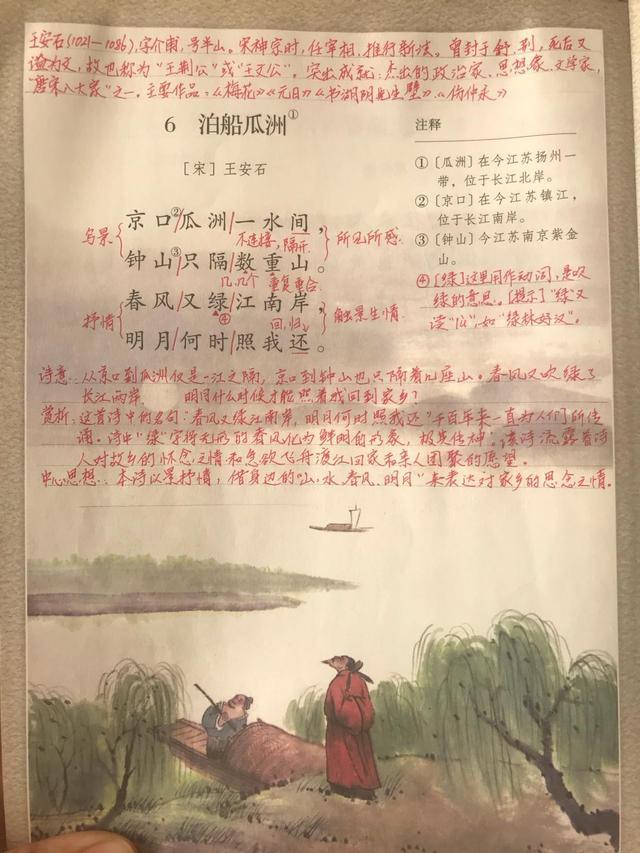 王安石(1021—1086),字介甫,号半山。宋神宗时,任宰相,推行新法。曾封于舒、荆,死后又
谥为文,故也称为“王荆公”或“王文公”。突出成就:杰出的政治家、思想家、文学家,
“唐宋八大家”之一。主要作品:《梅花》《元日》《书湖阴先生壁》《伤仲永》
6 泊船瓜洲①
[宋]王安石
京口②/瓜洲/一水间,
不连接,隔开
写景
所见所感
钟山③/只隔/数重山。
几,几个 重复重合
春风/又绿/江南岸,
④
抒情
触景生情
回,归
明月/何时/照我还。
注释
①[瓜洲]在今江苏扬州一
带,位于长江北岸。
②[京口]在今江苏镇江,
位于长江南岸。
③[钟山]今江苏南京紫金
山。
④[绿]这里用作动词,是吹
绿的意思。[提示]“绿”又
读“lù”,如“绿林好汉”。
诗意:从京口到瓜洲仅是一江之隔,京口到钟山也只隔着几座山。春风又吹绿了
长江两岸,明月什么时候才能照着我回到家乡?
赏析:这首诗中的名句:春风又绿江南岸,明月何时照我还”千百年来一直为人们所传
诵。诗中“绿”字将无形的春风化为鲜明的形象,极其传神;该诗流露着诗
人对故乡的怀念之情和急欲飞舟渡江回家和亲人团聚的愿望。
中心思想:本诗以景抒情,借身边的“山、水、春风、明月”来表达对家乡的思念之情。